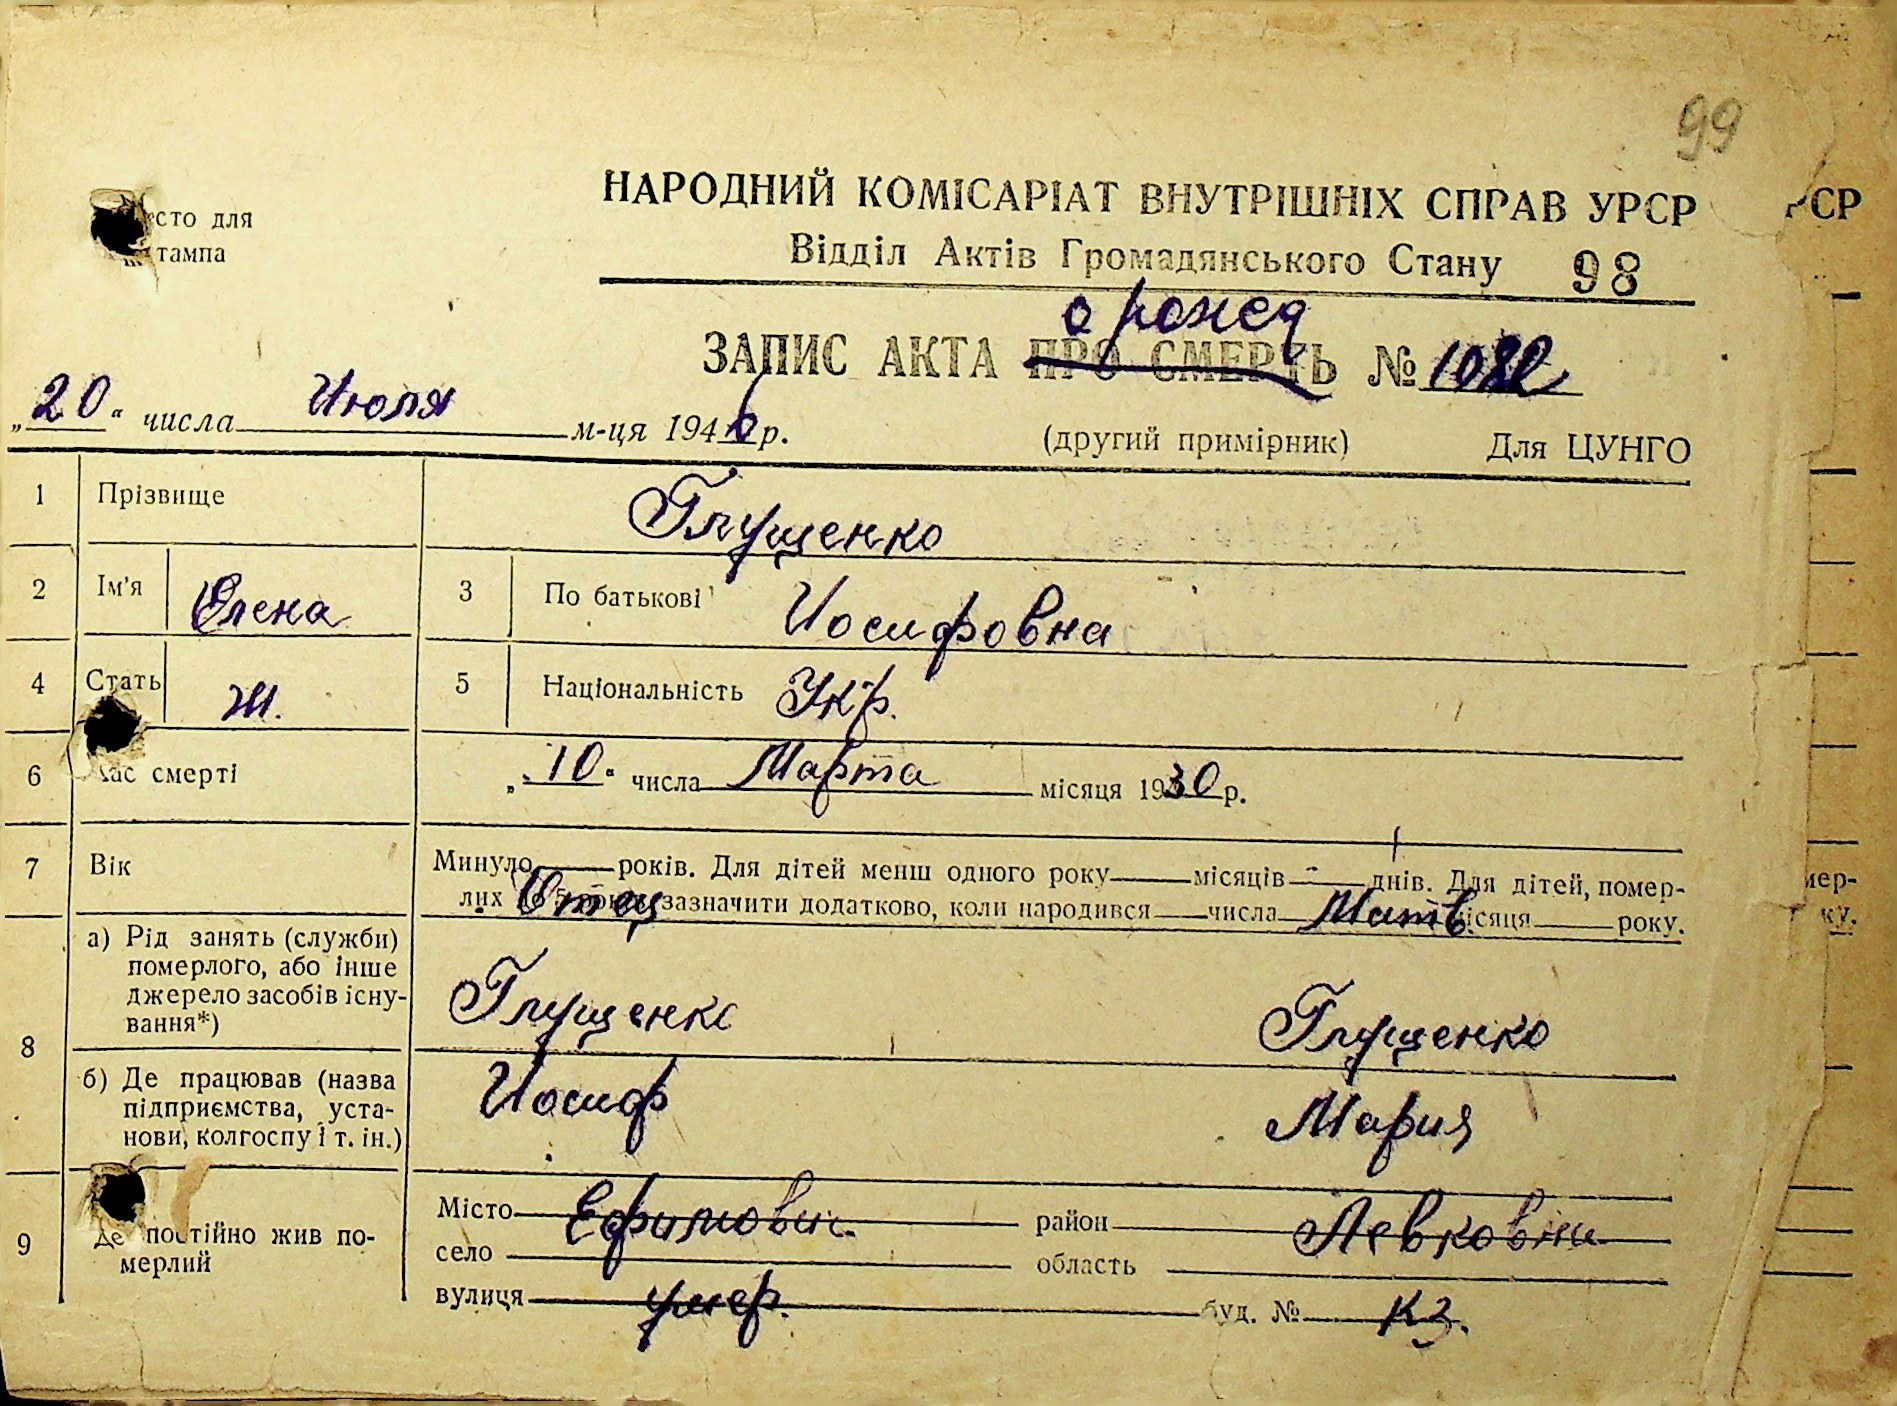 99
НАРОДНИЙ КОМІСАРІАТ ВНУТРІШНІХ СПРАВ УРСР
РСР
сто для
штампа
Відділ Актів Громадянського Стану 98
о рожед
ЗАПИС АКТА ПРО СМЕРТЬ № 1082
„20“ числа Июля м-ця 194 р.
(другий примірник) Для ЦУНГО
1 Прізвище Глущенко
2 Ім'я Елена 3 По батькові Иосифовна
4 Стать Ж. 5 Національність Укр.
6 Час смерті „10“ числа Марта місяця 1930 р.
7 Вік Минуло років. Для дітей менш одного року місяців днів. Для дітей, помер-
лих до 5 років, зазначити додатково, коли народився числа місяця року.
Отец Мать
мер-
ку.
8 а) Рід занять (служби)
померлого, або інше
джерело засобів існу-
вання*)
Глущенко Глущенко
б) Де працював (назва
підприємства, уста-
нови, колгоспу і т. ін.)
Иосиф Мария
9 Де постійно жив по-
мерлий
Місто Ефимович. район Левковна
село область
вулиця умер. буд. № КЗ.